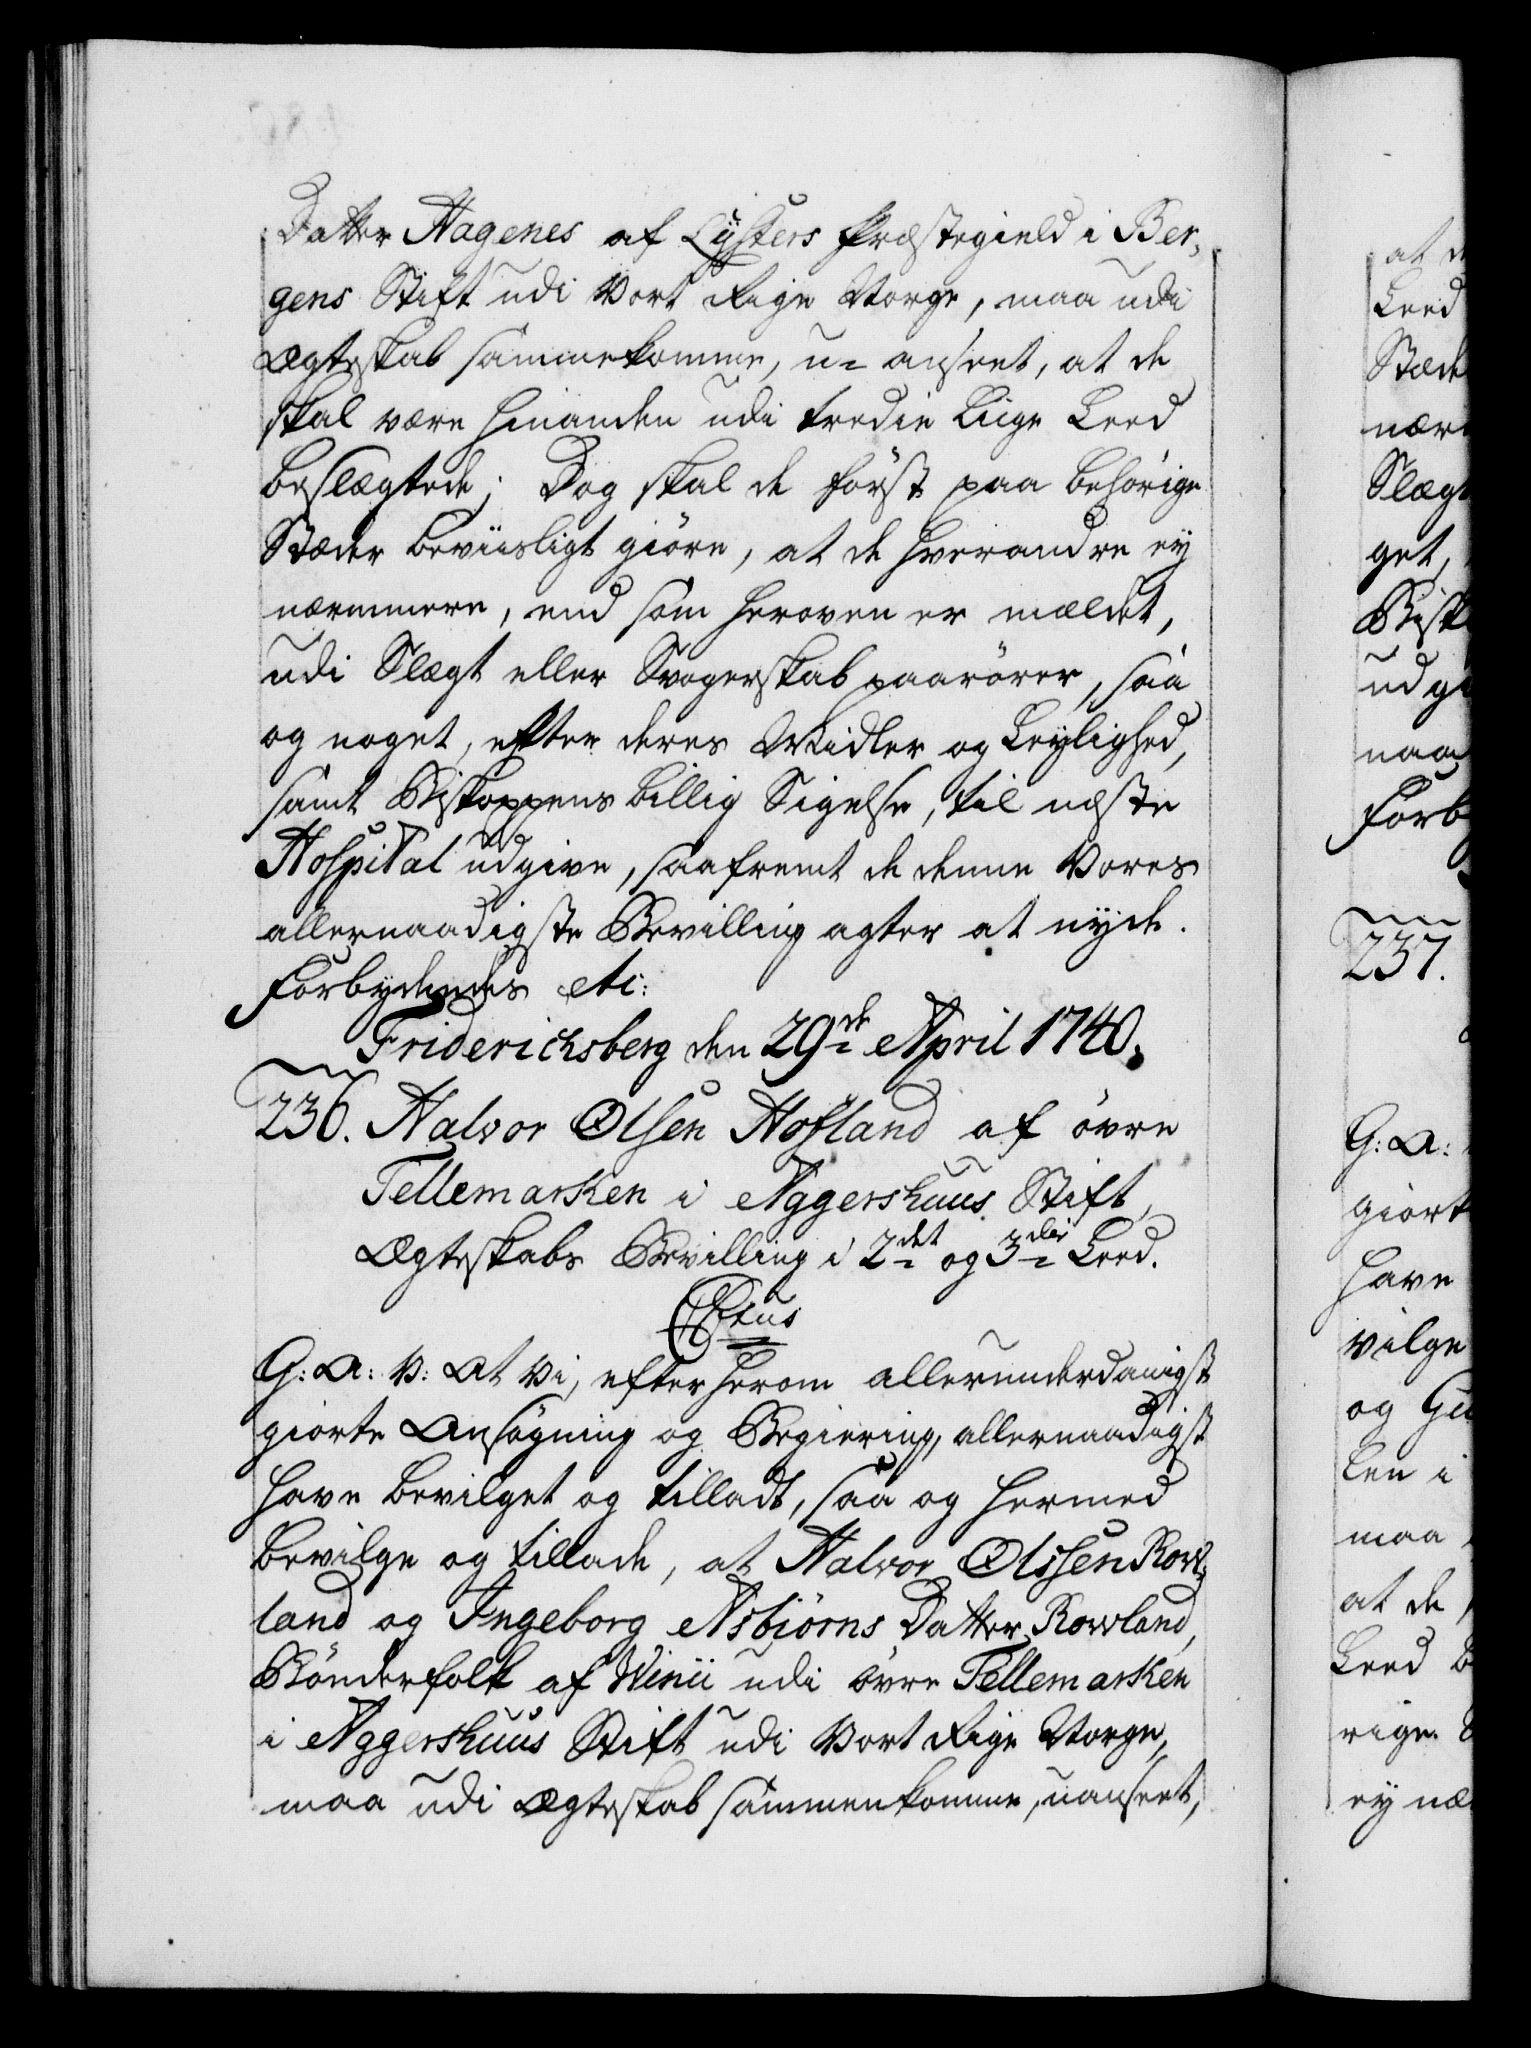 Datter Hagenes af Lysters Præstegield i Ber-
gens Stift udi Vort Rige Norge, maa udi
Ægteskab sammenkomme, u- anseet, at de
skal være hinanden udi tredie Liige Leed
beslægtede; Dog skal de först paa behörige
Stæder beviisligt giöre, at de hverandre ey
nærmmere, end som heroven er meldet,
udi Slægt eller Svogerskab paarörer, saa
og noget, efter deres Midler og Leylighed,
samt Biskoppens billig Sigelse, til næste
Hospital udgive, saafremt de denne Vores
allernaadigste Bevilling agter at nyde.
Forbydendes etc:
Friderichsberg den 29de April 1740.
236. Halvor Olsen Hofland af övre
Tellemarken i Aggershuus Stift,
Ægteskabs Bevilling i 2det og 3die Leed.
G: A: V: At Vi, efter herom allerunderdanigst
giorte Ansögning og Begiering, allernaadigst
have bevilget og tilladt, saa og hermed
bevilge og tillade, at Halvor Olssen Row-
land og Ingeborg Asbiörns Datter Rowland,
Bönderfolk af Winii udi övre Tellemarken
i Aggershuus Stift udi Vort Rige Norge,
maa udi Ægteskab sammenkomme, uanseet,
at de
Leed
Stæde
nær
Slægt
get,
Bisk
udgi
naa
Forb
237.
G: A:
giort
have
vilge
og Gu
len i
maa
at de
Leed B
rige S
ey næ